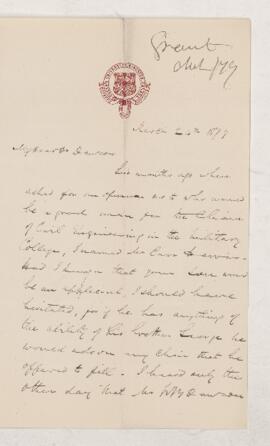 Grant
Mch/79
March 24th 1879
My dear Dr Dawson
Six months ago when
asked for my opinion as to who would
be a good man for the Chair
of Civil Engineering in the Military
College, I named Mr
Had I known that your son would
be an applicant, I should have
hesitated, for if he has anything of
the ability of his brother George he
would adorn any Chair that he
offered to fill. I heard only the
other day that Mr Dawson